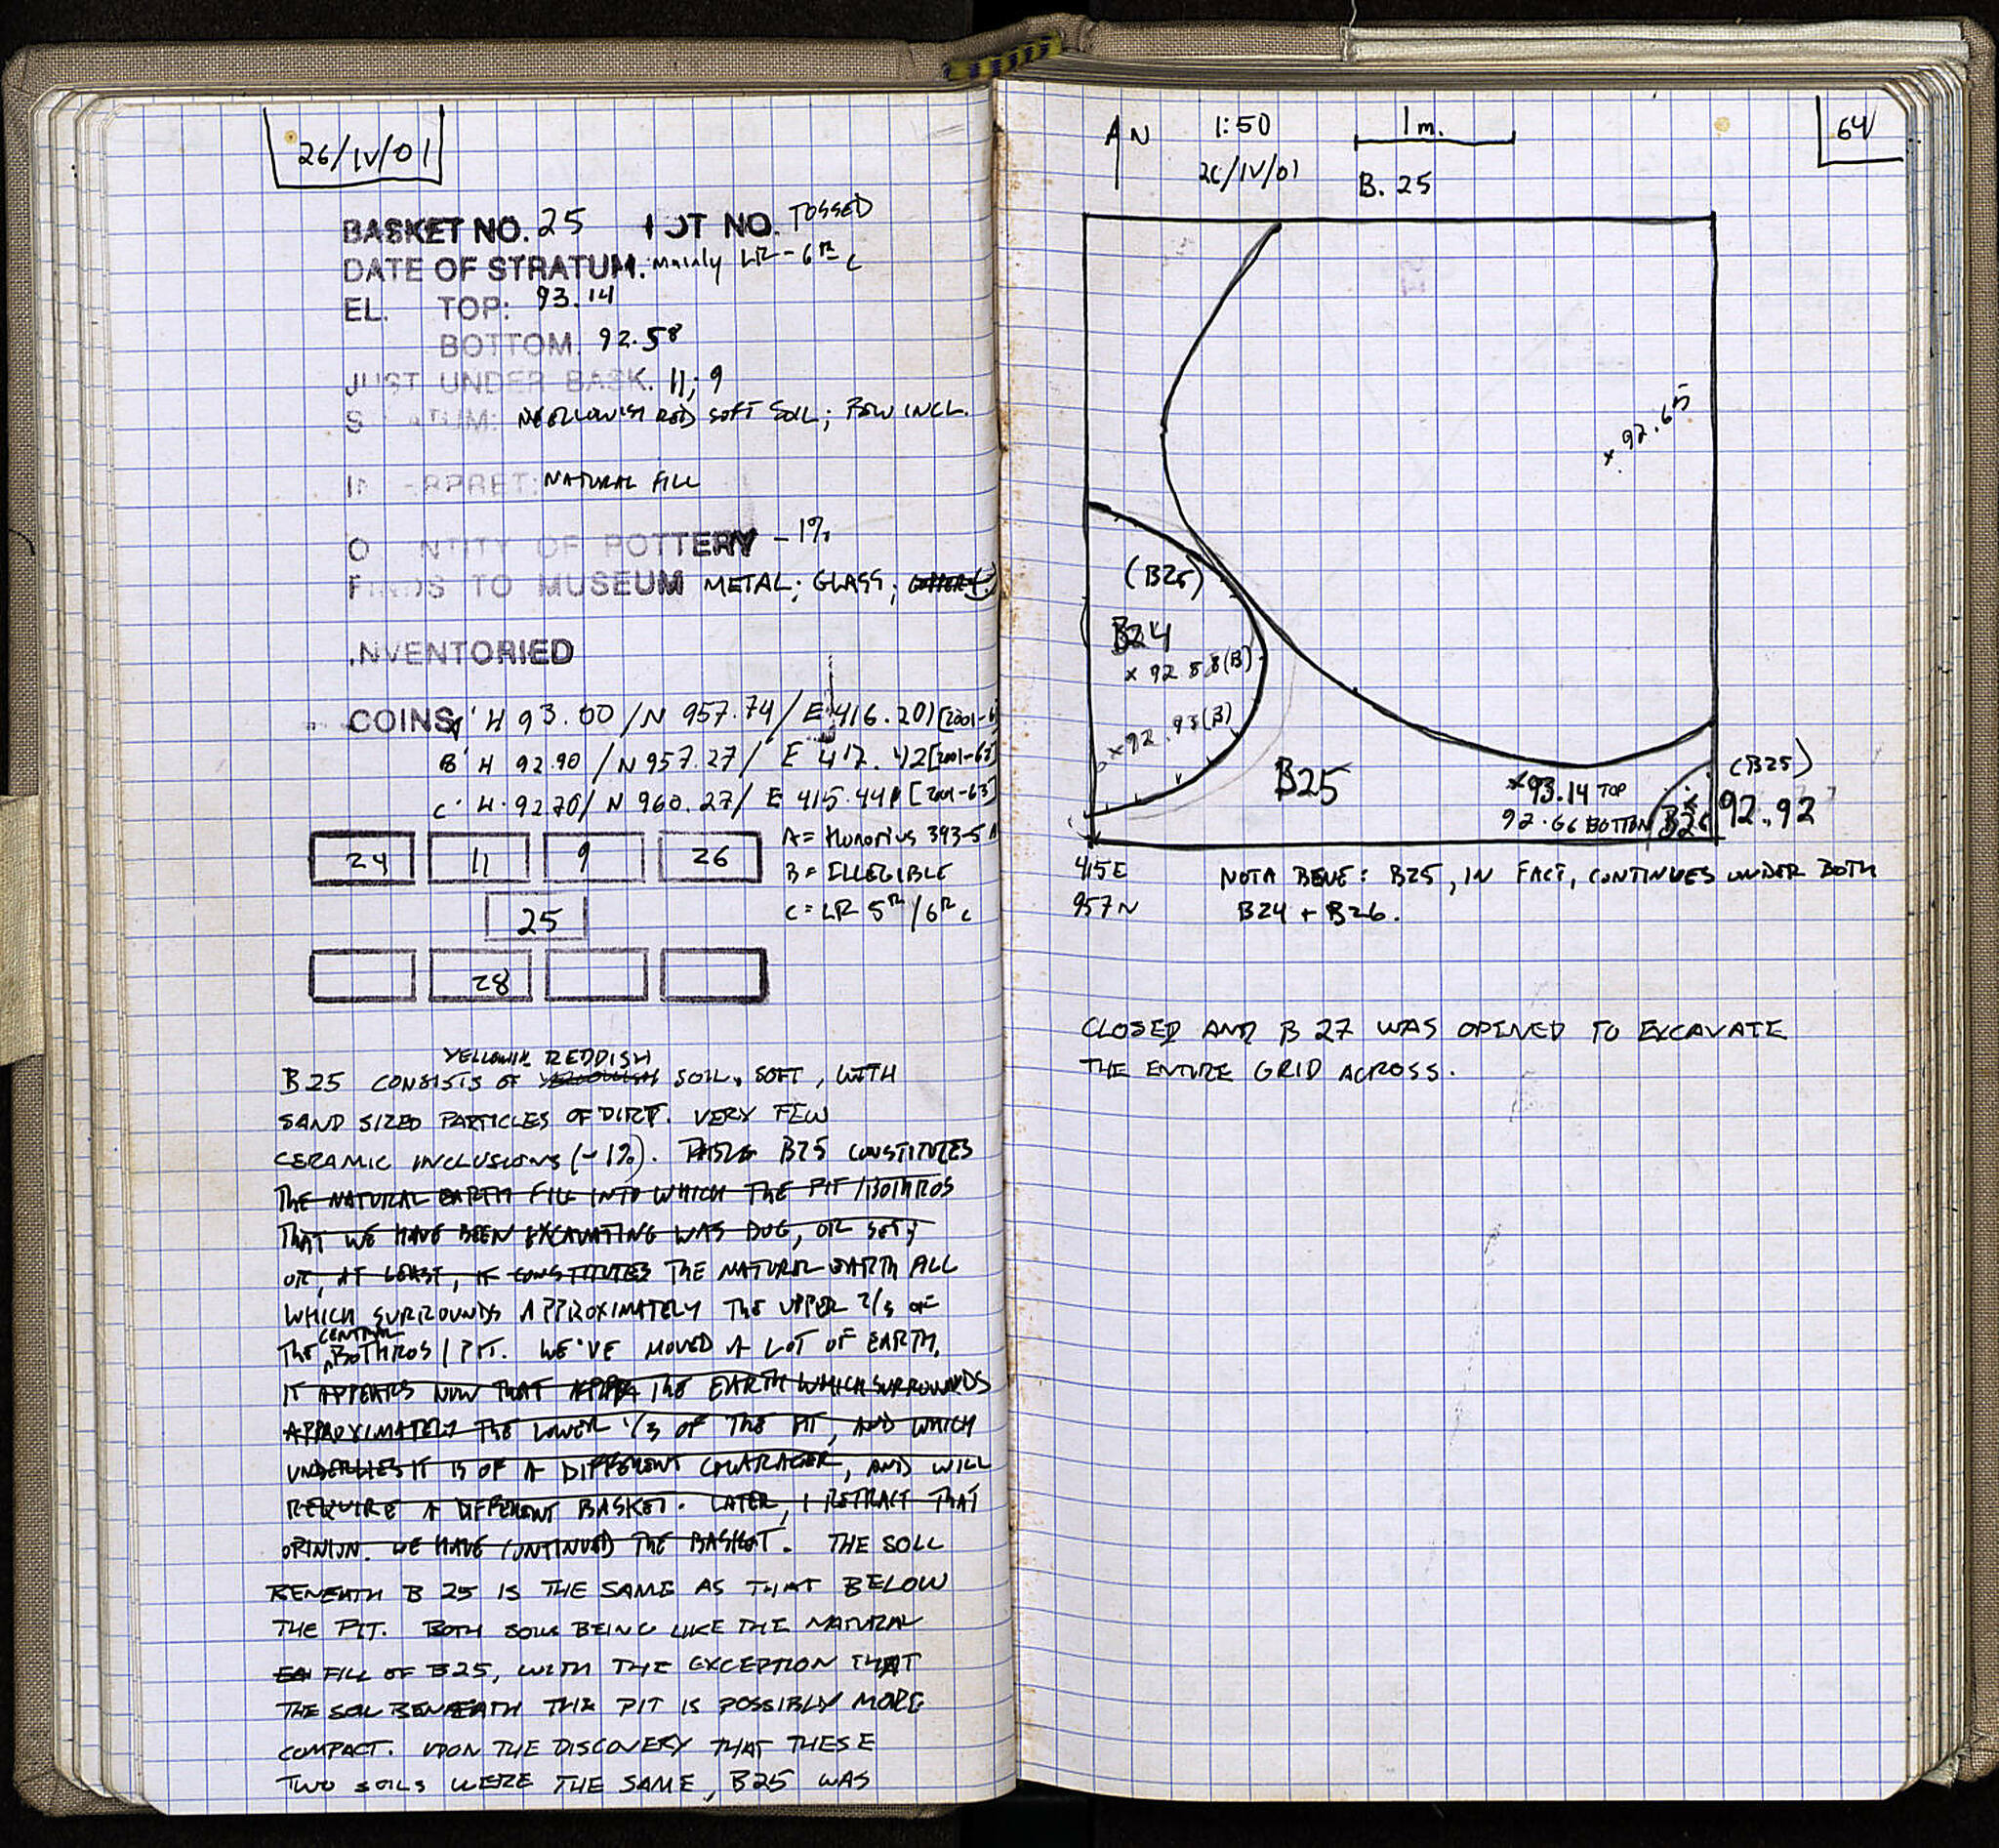 26/IV/01
BASKET NO. 25 LOT NO. TOSSED
DATE OF STRATUM. Mainly LR - 6th c
EL. TOP: 93.14
BOTTOM. 92.58
JUST UNDER BASK. 11; 9
YELLOWISH RED SOFT SOIL; FEW INCL.
NATURAL FILL
QUANTITY OF POTTERY ~1%
FINDS TO MUSEUM METAL; GLASS;
INVENTORIED
COINS A: H 93.00 / N 957.74 / E 416.20
B: H 92.90 / N 957.27 / E 417.42
C: H. 92.70 / N 960.27 / E 415.44 [2001-63]
A = Honorius 393-5
24 11 9 26
B = ILLEGIBLE
C = LR 5th/6th c
25
28
YELLOWISH REDDISH
B25 CONSISTS OF SOIL, SOFT, WITH
SAND SIZED PARTICLES OF DIRT. VERY FEW
CERAMIC INCLUSIONS (~1%). B25 CONSTITUTES
THE NATURAL EARTH FILL INTO WHICH THE PIT/BOTHROS
THAT WE HAVE BEEN EXCAVATING WAS DUG, OR SET,
OR, AT LEAST, IT CONSTITUTES THE NATURAL EARTH FILL
WHICH SURROUNDS APPROXIMATELY THE UPPER 2/3 OF
THE CENTRAL BOTHROS / PIT. WE'VE MOVED A LOT OF EARTH.
IT APPEARS NOW THAT THE EARTH WHICH SURROUNDS
APPROXIMATELY THE LOWER 1/3 OF THE PIT, AND WHICH
UNDERLIES IT IS OF A DIFFERENT CHARACTER, AND WILL
REQUIRE A DIFFERENT BASKET. LATER, I RETRACT THAT
OPINION. WE HAVE CONTINUED THE BASKET. THE SOIL
BENEATH B 25 IS THE SAME AS THAT BELOW
THE PIT. BOTH SOILS BEING LIKE THE NATURAL
EA FILL OF B25, WITH THE EXCEPTION THAT
THE SOIL BENEATH THE PIT IS POSSIBLY MORE
COMPACT. UPON THE DISCOVERY THAT THESE
TWO SOILS WERE THE SAME, B25 WAS
N 1:50 1 m. 64
26/IV/01 B. 25
x 92.65
(B25)
B24
x 92.88(B)
x 92.93(B)
B25
(B25)
x 93.14 TOP
92.66 BOTTOM B26 92.92
415E
957N
NOTA BENE: B25, IN FACT, CONTINUES UNDER BOTH
B24 + B26.
CLOSED AND B 27 WAS OPENED TO EXCAVATE
THE ENTIRE GRID ACROSS.